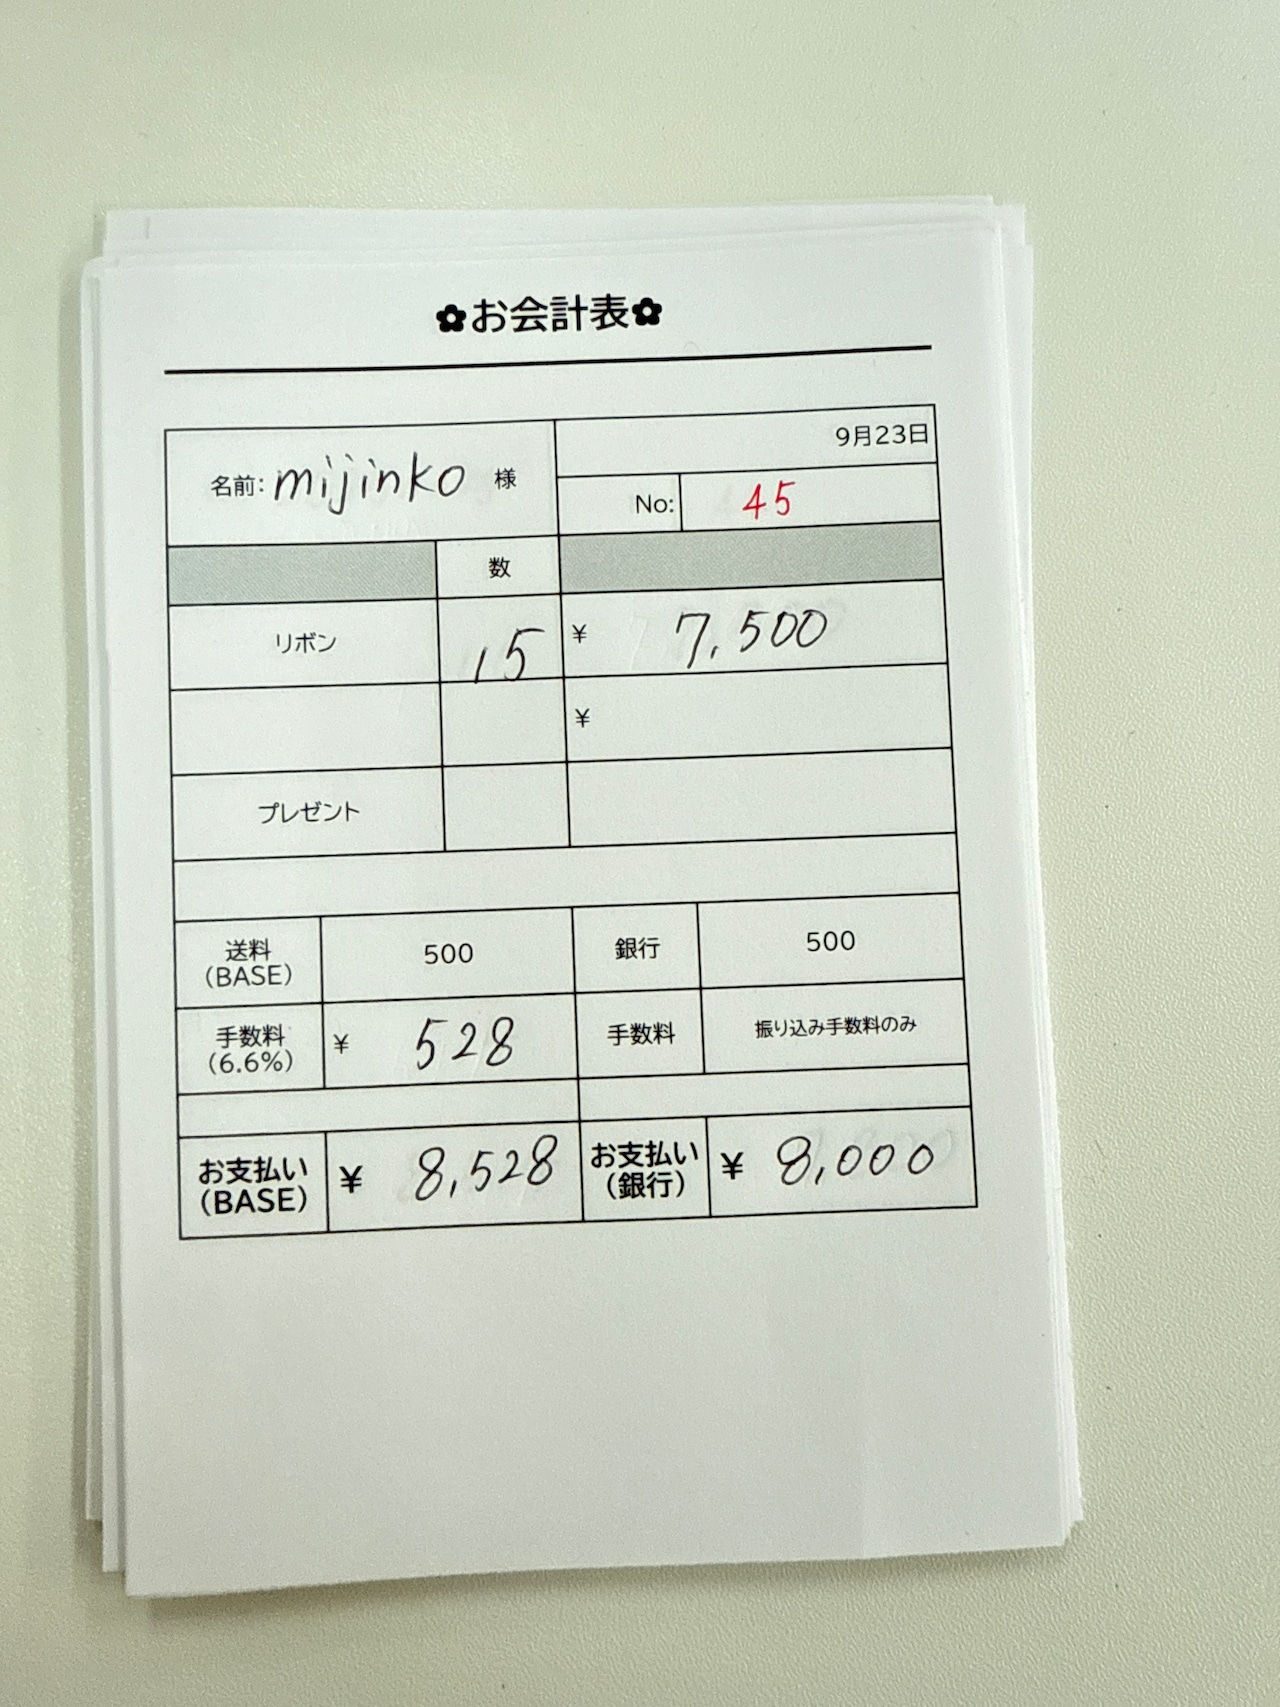 ✿お会計表✿
名前: mijinko 様
9月23日
No: 45
数
リボン 15 ¥ 7,500
¥
プレゼント
送料 (BASE) 500 銀行 500
手数料 (6.6%) ¥ 528 手数料 振り込み手数料のみ
お支払い (BASE) ¥ 8,528 お支払い (銀行) ¥ 8,000